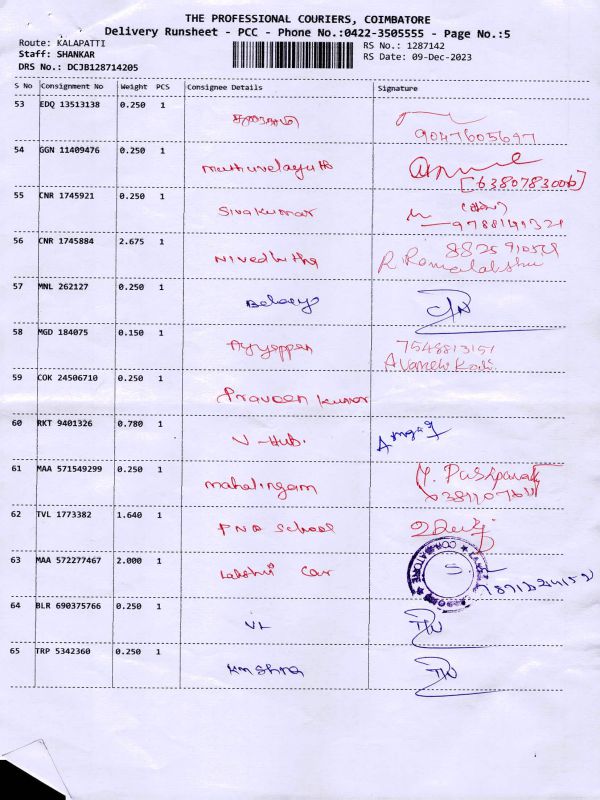 THE PROFESSIONAL COURIERS, COIMBATORE
Delivery Runsheet - PCC - Phone No.:0422-3505555 - Page No.:5
Route: KALAPATTI
RS No.: 1287142
Staff: SHANKAR
RS Date: 09-Dec-2023
DRS No.: DCJB128714205
S No Consignment No Weight PCS Consignee Details Signature
53 EDQ 13513138 0.250 1
9047605697
54 GGN 11409476 0.250 1 muthuvelayuth
[6380783006]
55 CNR 1745921 0.250 1 Sivakumar
9788149321
56 CNR 1745884 2.675 1 Nivedhitha
57 MNL 262127 0.250 1
58 MGD 184075 0.150 1 Ayyappan 7548813151
59 COK 24506710 0.250 1 Praveen kumar
60 RKT 9401326 0.780 1 V-Hub.
61 MAA 571549299 0.250 1 mahalingam
62 TVL 1773382 1.640 1 PNR School
63 MAA 572277467 2.000 1 Lakshmi Car
64 BLR 690375766 0.250 1 VL
65 TRP 5342360 0.250 1 Krishna